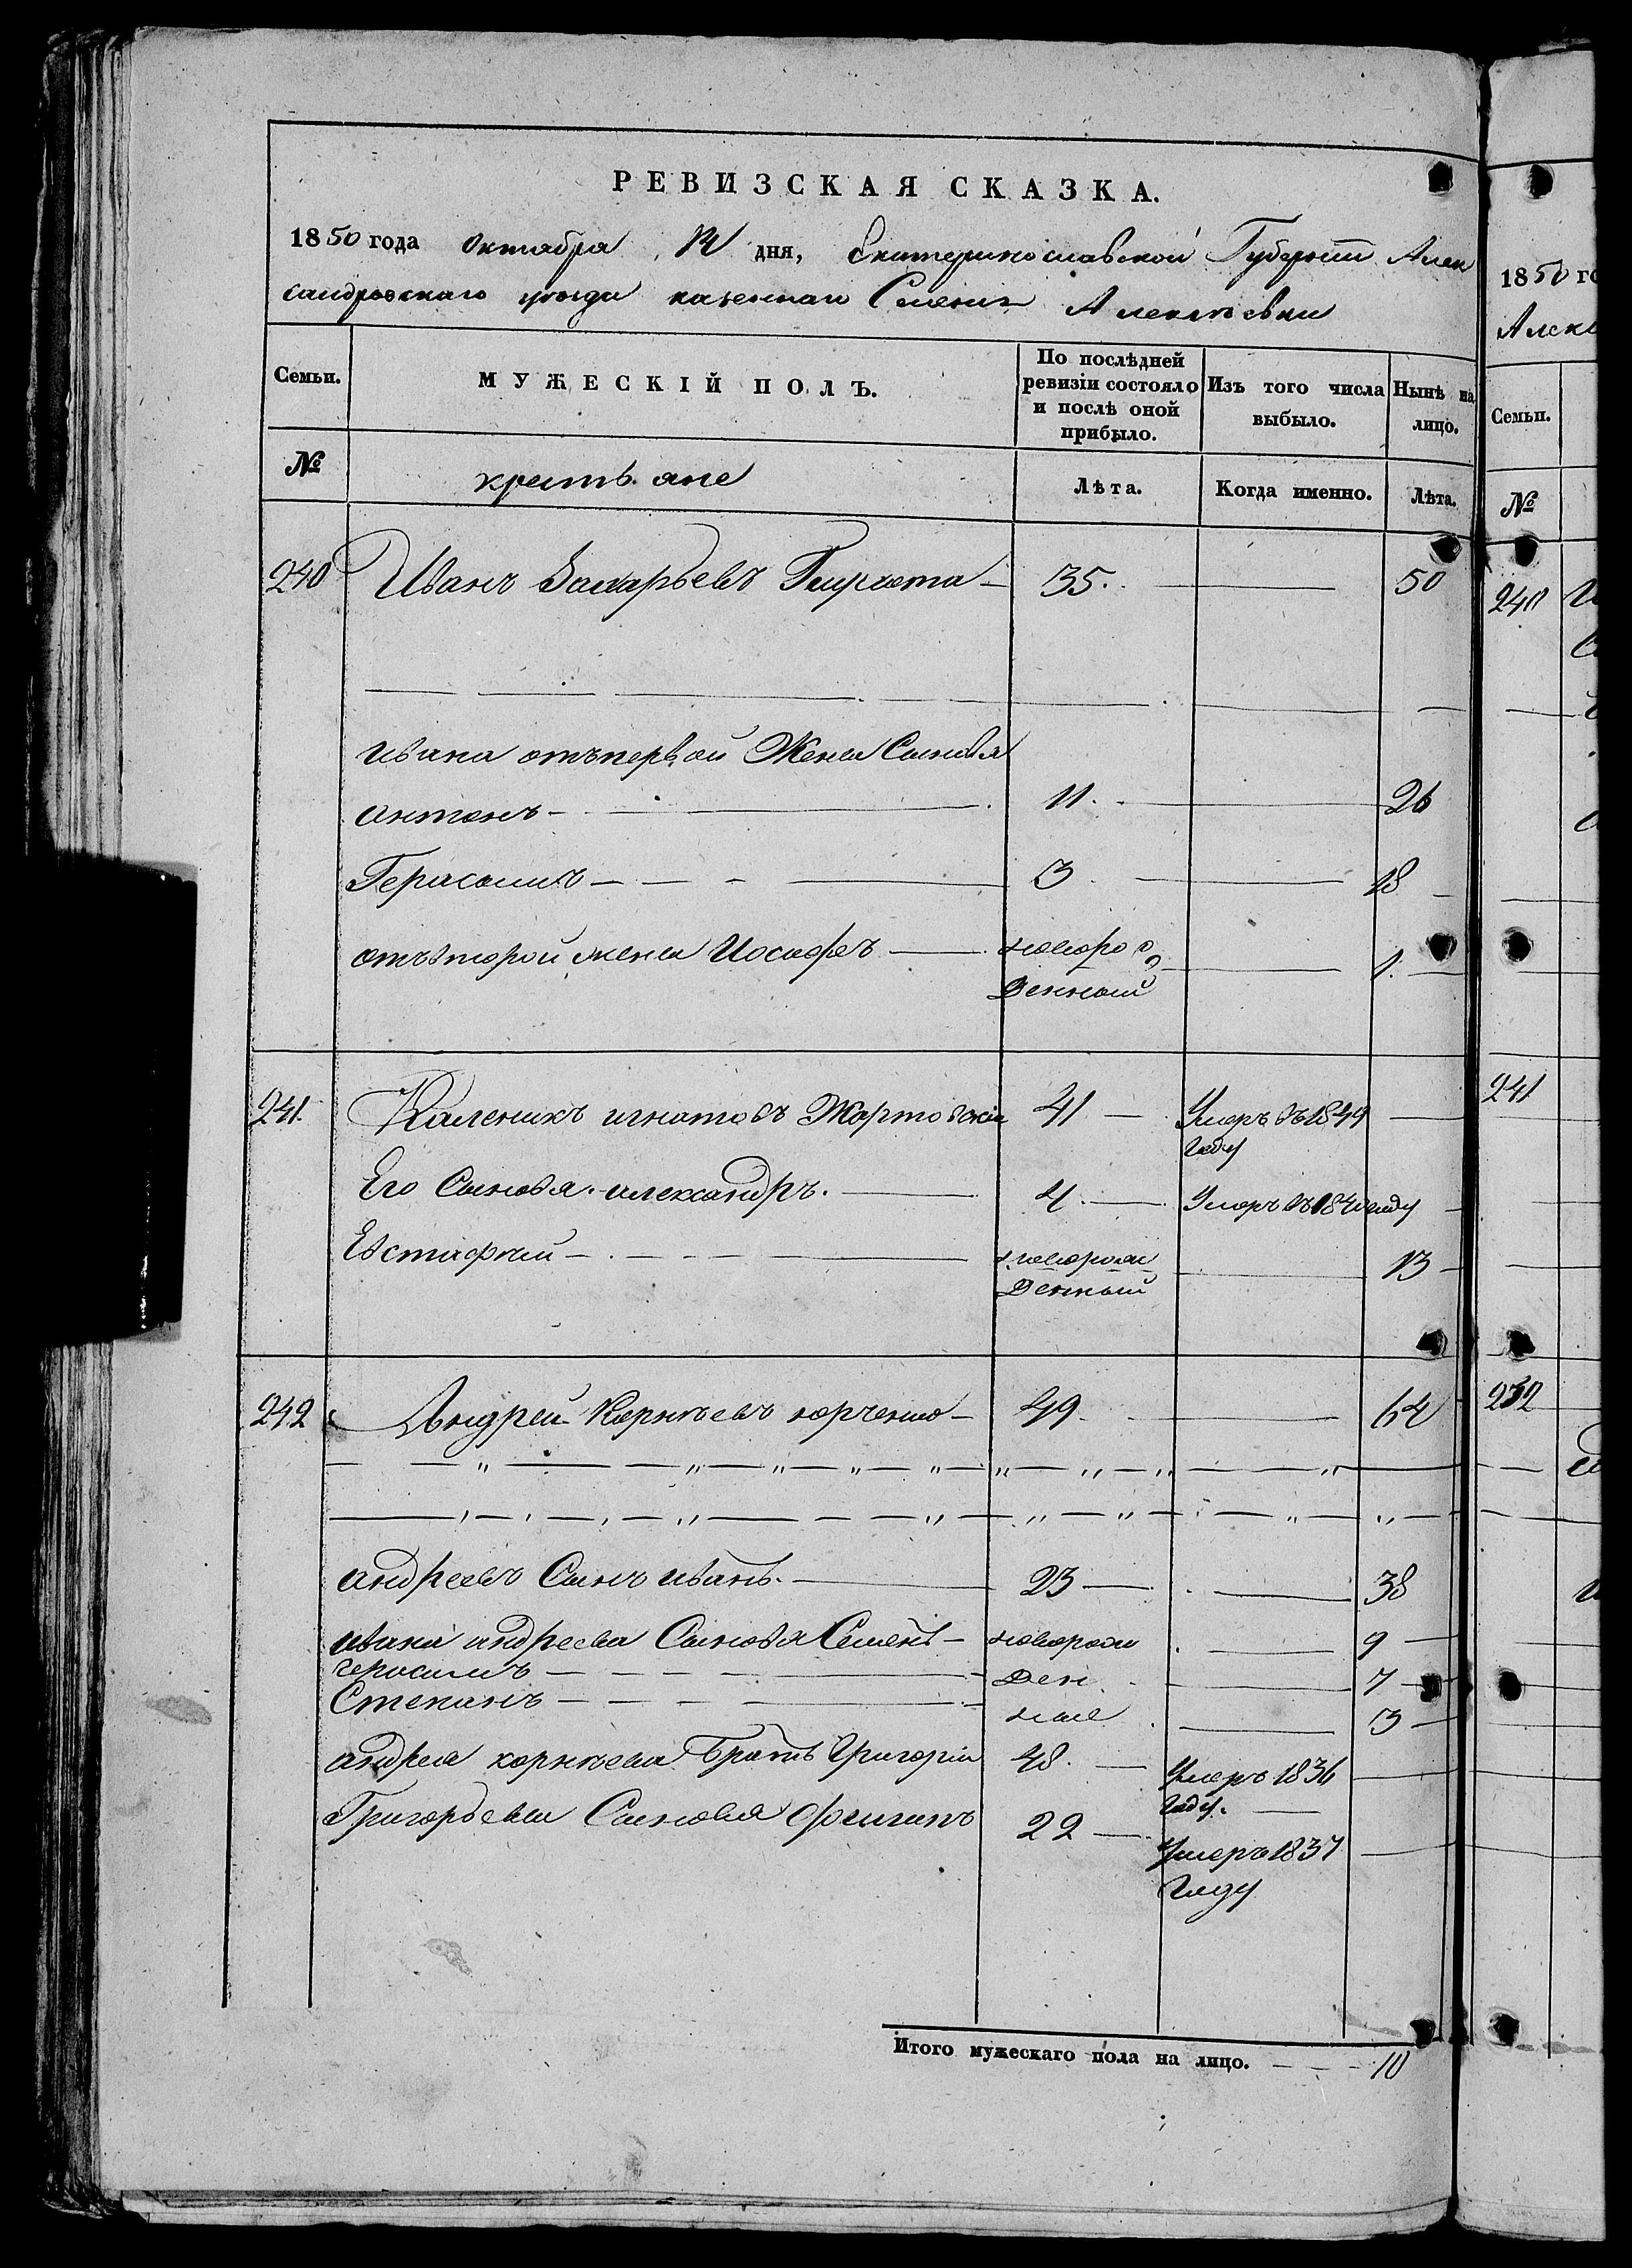 РЕВИЗСКАЯ СКАЗКА.
1850 года Октября 14 дня, Екатеринославской Губернии Алек
сандровскаго уезда казеннаго Селения Алексеевки
Семьи.
МУЖЕСКІЙ ПОЛЪ.
По послѣдней ревизіи состояло и послѣ оной прибыло.
Изъ того числа выбыло.
Нынѣ на лицо.
№
крестьяне
Лѣта.
Когда именно.
Лѣта.
240 Иванъ Захарьевъ 35. 50
ивана отъ первой Жены Сыновья
антонъ 11. 26
Герасимъ 3 18
отъ второй жены Иосифъ новорож 1.
денный
241. Каленикъ игнатовъ 41 Умеръ въ 1849
году
Его Сыновья александръ. 4 Умеръ въ 1840 году
Евстафий новорож 13
денный
242 Андрей Корнеевъ юрченко 49 64
андреевъ Сынъ иванъ. 23 38
ивана андреева Сыновья Семенъ новорож 9
герасимъ ден 7
Степанъ ные 3
андрея корнеева Братъ Григорий 48. Умеръ 1836
году.
Григорьевы Сыновья Филипъ 22 Умеръ 1837
Году
Итого мужескаго пола на лицо. 10
1850 го
Алекс
Семьи.
№
240
241
232